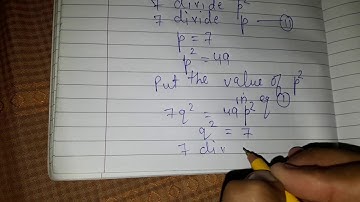 7 divide p²
7 divide p — (11)
p = 7
p² = 49
Put the value of p²
in eq (1)
7q² = 49p²
q² = 7
7 div